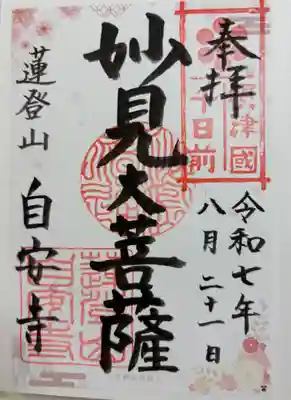 奉拝
津國
千日前
令和七年
八月二十一日
妙見大菩薩
蓮登山
自安寺